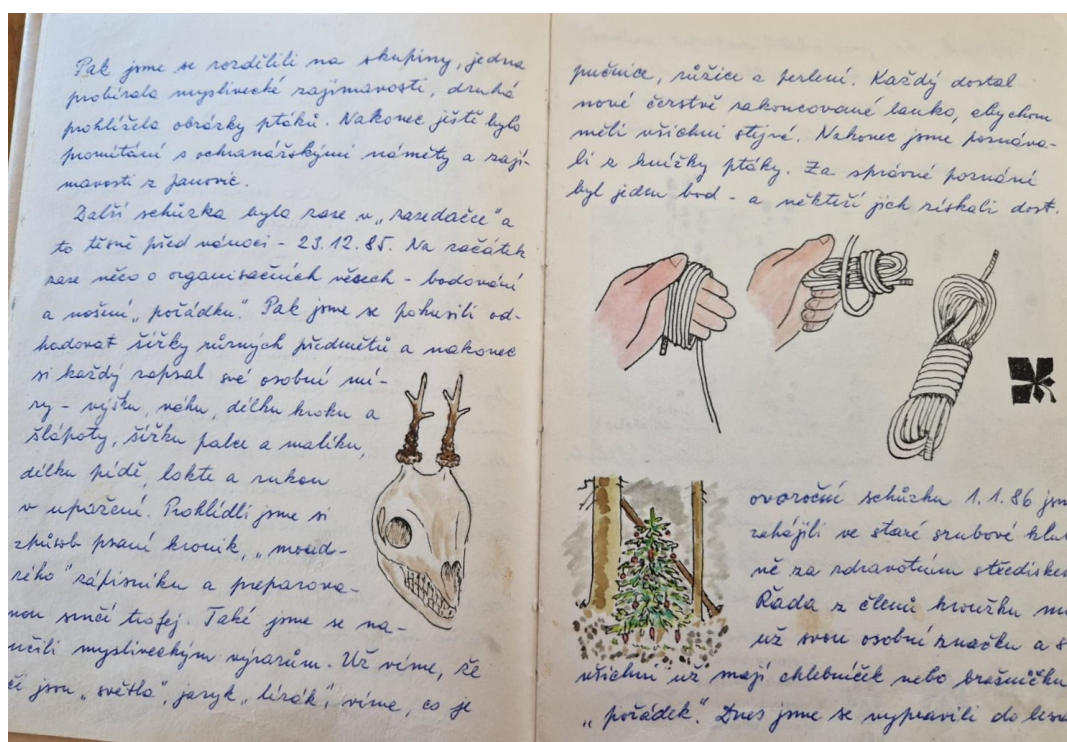 Pak jsme se rozdělili na skupiny, jedna
probírala myslivecké zajímavosti, druhá
prohlížela obrázky ptáků. Nakonec ještě bylo
promítání s ochranářskými náměty a zají-
mavosti z Janovic.
Další schůzka byla zase v „zasedačce" a
to těsně před vánoci - 23.12.85. Na začátek
zase něco o organisačních věcech - bodování
a nošení „pořádku." Pak jsme se pokusili od-
hadovat šířky různých předmětů a nakonec
si každý zapsal své osobní mí-
ry - výšku, váhu, délku kroku a
šlápoty, šířku palce a malíku,
délku pídě, lokte a rukou
v upažení. Prohlídli jsme si
způsob psaní kronik, „moud-
rého" zápisníku a preparova-
nou srnčí trofej. Také jsme se na-
učili mysliveckým výrazům. Už víme, že
oči jsou „světla", jazyk „lízák", víme, co je
pučnice, růžice a perlení. Každý dostal
nové čerstvě zakoncované lanko, abychom
měli všichni stejné. Nakonec jsme poznáva-
li z knížky ptáky. Za správné poznání
byl jeden bod - a někteří jich získali dost.
ovoroční schůzku 1.1.86 jsm
zahájili ve staré srubové klub
ně za zdravotním střediske
Řada z členů kroužku m
už svou osobní značku a s
všichni už mají chlebníček nebo brašničku
„pořádek". Dnes jsme se vypravili do lesa